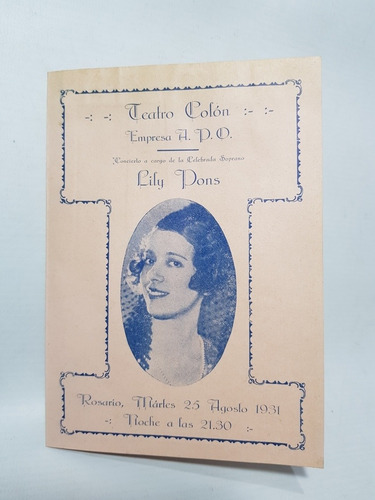 -:- -:- Teatro Colón -:- :-
Empresa A. P. O.
Concierto a cargo de la Celebrada Soprano
Lily Pons
Rosario, Mártes 25 Agosto 1931
-: Noche a las 21.30 :-